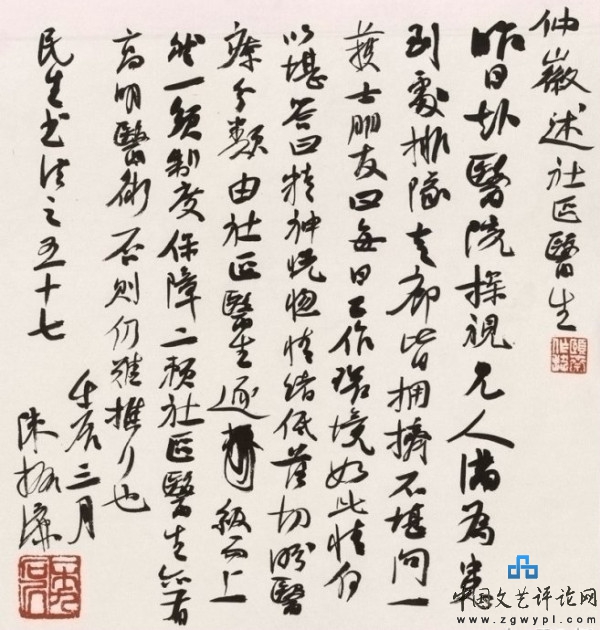 仲徽述社区醫生
昨日赴醫院探視見人满為患
到處排隊走廊皆拥擠不堪問一
護士朋友曰每日工作環境如此情何
以堪答曰精神恍惚情绪低落切盼醫
療分類由社区醫生逐級而上
然一須制度保障二赖社区醫生亦有
高明醫術否則仍難推行也
民生书法之五十七
壬辰三月
陳振濂
中国文艺评论网
www.zgwypl.com